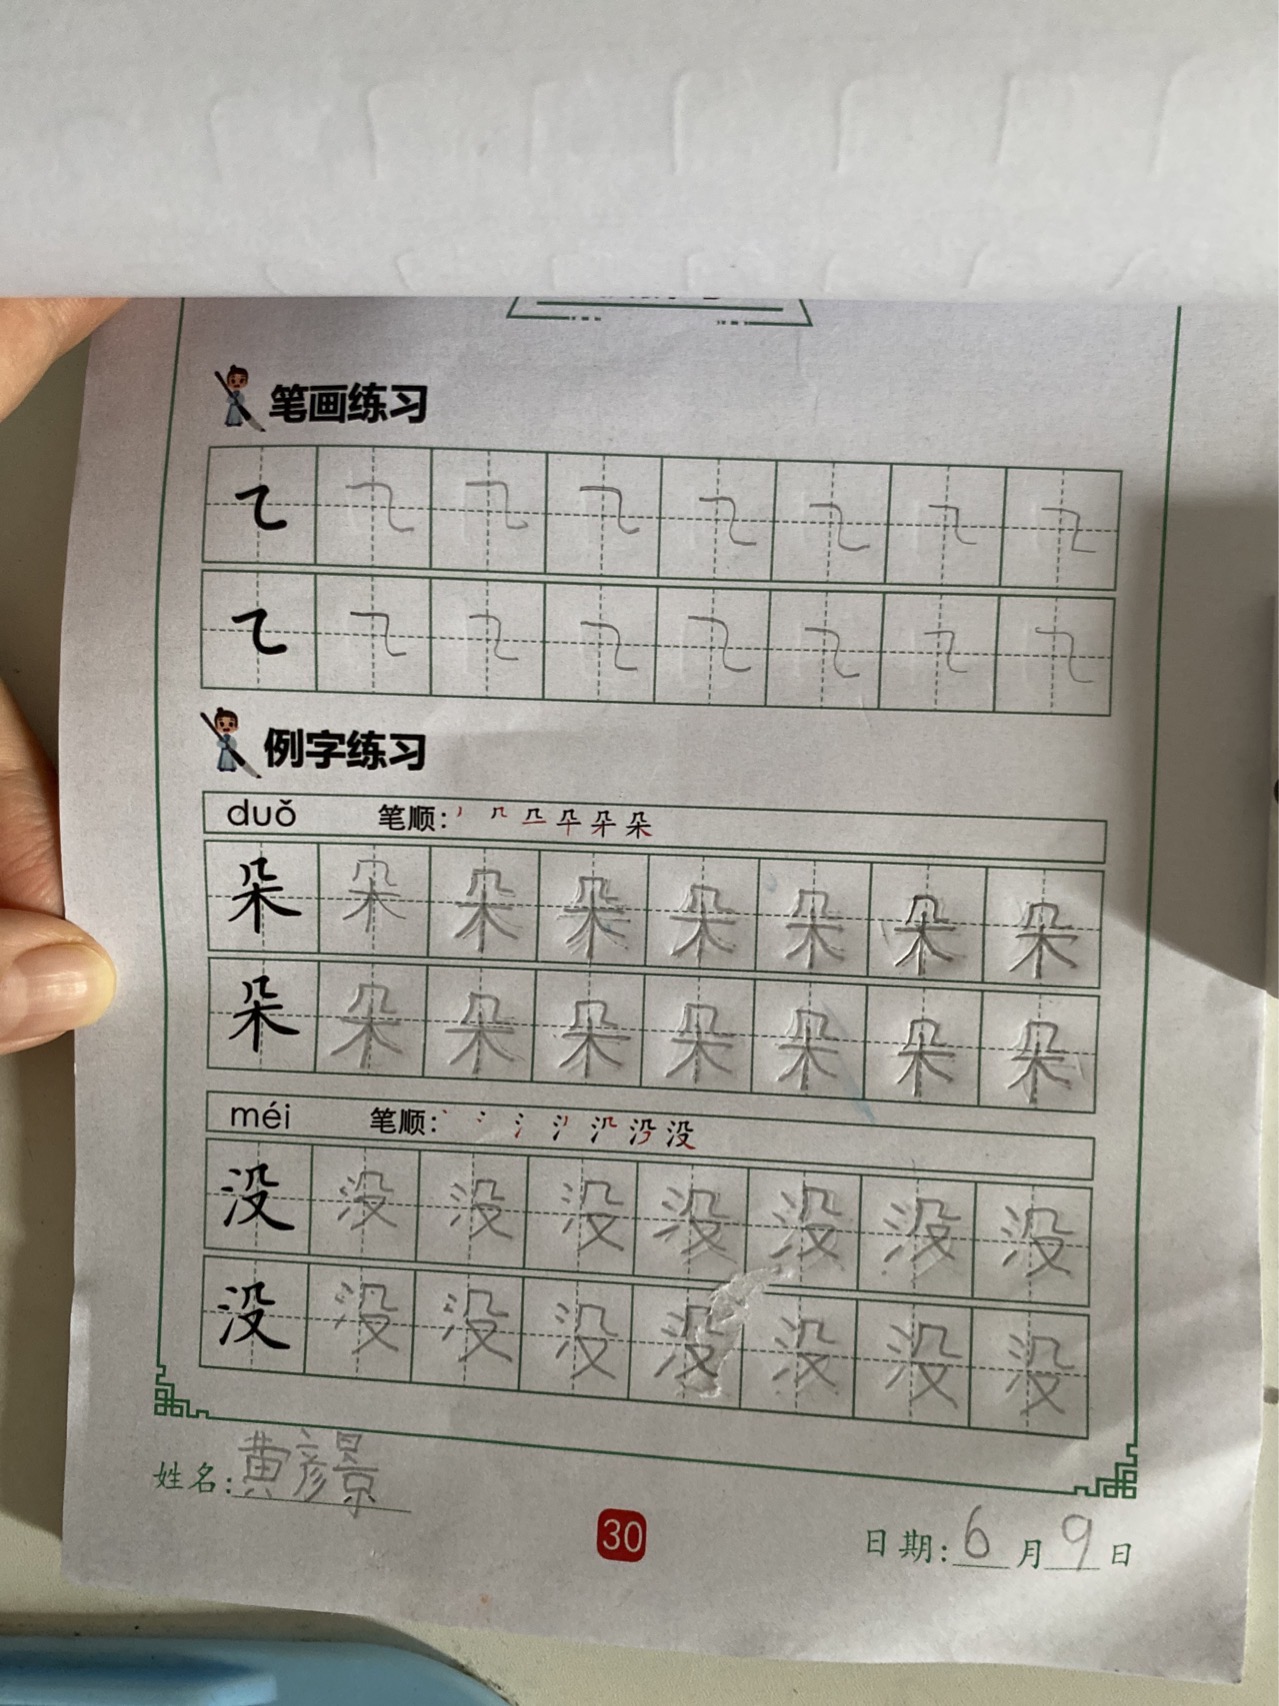 笔画练习
㇈ ㇈ ㇈ ㇈ ㇈ ㇈ ㇈ ㇈
㇈ ㇈ ㇈ ㇈ ㇈ ㇈ ㇈ ㇈
例字练习
duǒ 笔顺:
朵 朵 朵 朵 朵 朵 朵 朵
朵 朵 朵 朵 朵 朵 朵 朵
méi 笔顺:
没 没 没 没 没 没 没 没
没 没 没 没 没 没 没 没
姓名:黄彦景
30
日期:6月9日